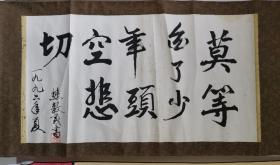 莫等
了少
年頭
空悲
切
一九九六年夏
書